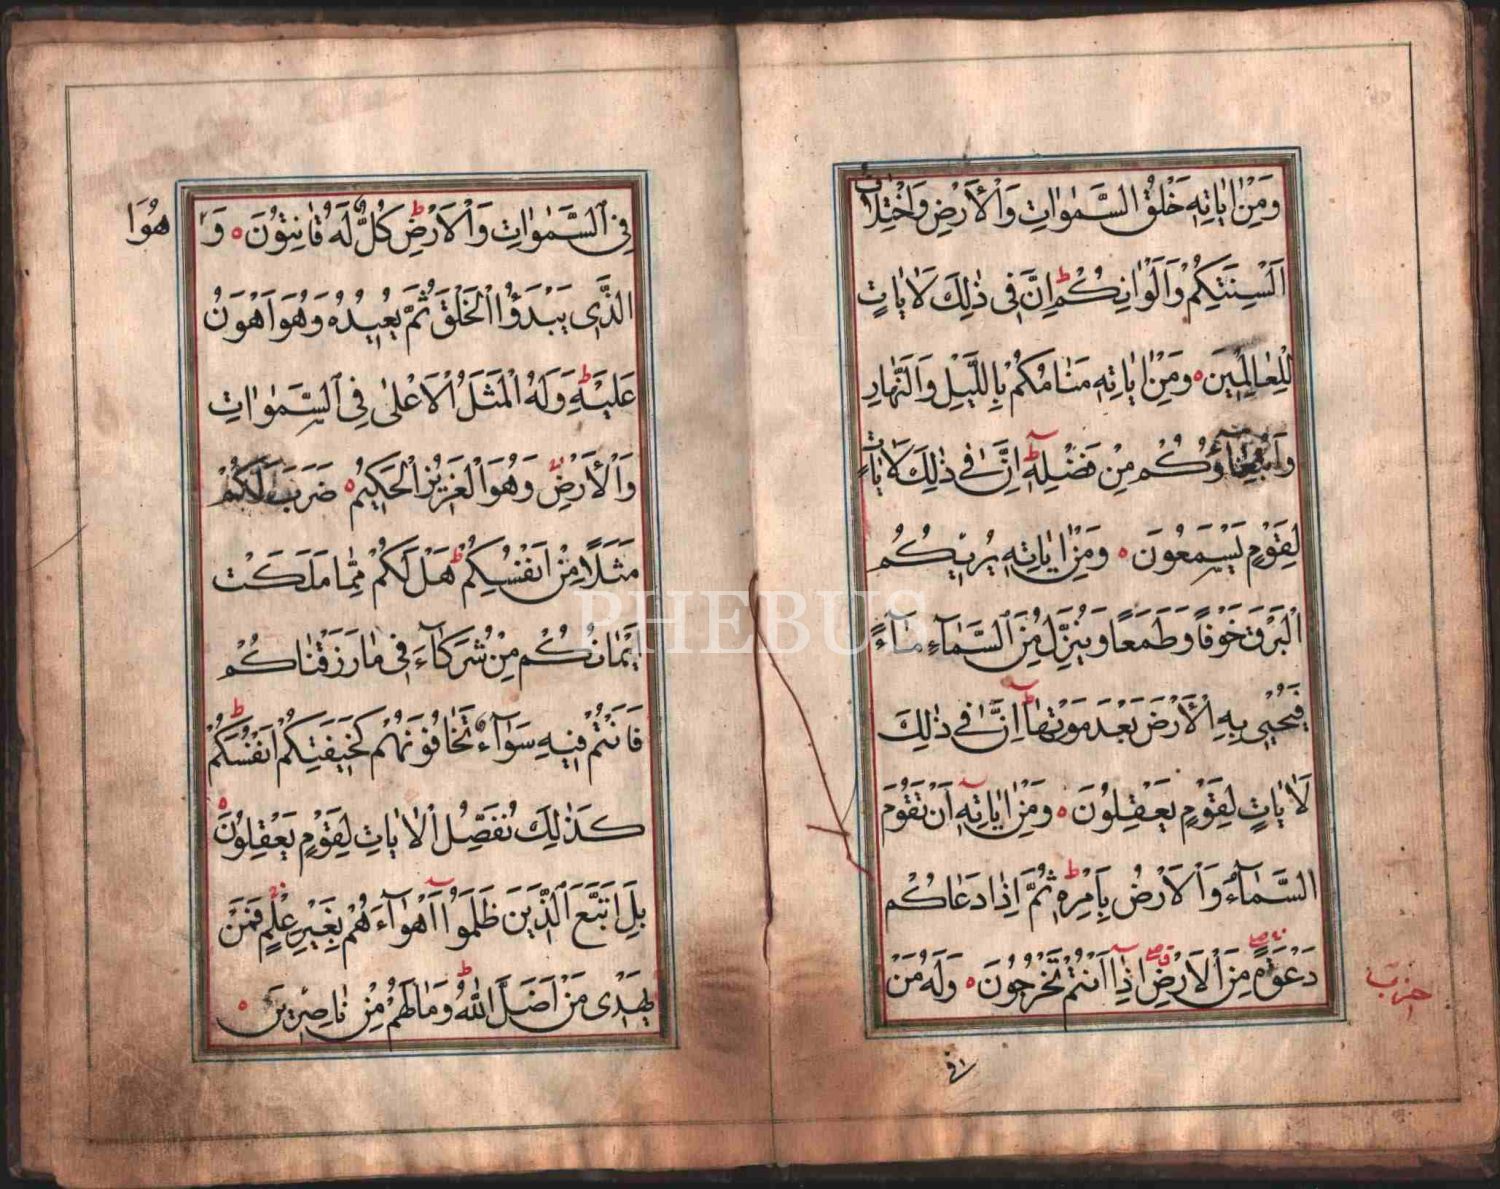 وَمِنْ اٰيَاتِهٖ خَلْقُ السَّمٰوَاتِ وَالْاَرْضِ وَاخْتِلَافُ
اَلْسِنَتِكُمْ وَاَلْوَانِكُمْ ط اِنَّ فٖى ذٰلِكَ لَاٰيَاتٍ
لِلْعَالِمٖينَ وَمِنْ اٰيَاتِهٖ مَنَامُكُمْ بِاللَّيْلِ وَالنَّهَارِ
وَابْتِغَاؤُكُمْ مِنْ فَضْلِهٖ اِنَّ فٖى ذٰلِكَ لَاٰيَاتٍ
لِقَوْمٍ يَسْمَعُونَ وَمِنْ اٰيَاتِهٖ يُرٖيكُمُ
الْبَرْقَ خَوْفًا وَطَمَعًا وَيُنَزِّلُ مِنَ السَّمَاءِ مَاءً
فَيُحْيٖى بِهِ الْاَرْضَ بَعْدَ مَوْتِهَا ط اِنَّ فٖى ذٰلِكَ
لَاٰيَاتٍ لِقَوْمٍ يَعْقِلُونَ وَمِنْ اٰيَاتِهٖ اَنْ تَقُومَ
السَّمَاءُ وَالْاَرْضُ بِاَمْرِهٖ ط ثُمَّ اِذَا دَعَاكُمْ
دَعْوَةً مِنَ الْاَرْضِ اِذَا اَنْتُمْ تَخْرُجُونَ وَلَهُ مَنْ
حزب
فى
فِى السَّمٰوَاتِ وَالْاَرْضِ ط كُلٌّ لَهُ قَانِتُونَ وَ
هُوَا
الَّذٖى يَبْدَؤُا الْخَلْقَ ثُمَّ يُعٖيدُهُ وَهُوَ اَهْوَنُ
عَلَيْهِ ط وَلَهُ الْمَثَلُ الْاَعْلٰى فِى السَّمٰوَاتِ
وَالْاَرْضِ وَهُوَ الْعَزٖيزُ الْحَكٖيمُ ضَرَبَ لَكُمْ
مَثَلًا مِنْ اَنْفُسِكُمْ ط هَلْ لَكُمْ مِمَّا مَلَكَتْ
اَيْمَانُكُمْ مِنْ شُرَكَاءَ فٖى مَا رَزَقْنَاكُمْ
فَاَنْتُمْ فٖيهِ سَوَاءٌ تَخَافُونَهُمْ كَخٖيفَتِكُمْ اَنْفُسَكُمْ ط
كَذٰلِكَ نُفَصِّلُ الْاٰيَاتِ لِقَوْمٍ يَعْقِلُونَ
بَلِ اتَّبَعَ الَّذٖينَ ظَلَمُوا اَهْوَاءَهُمْ بِغَيْرِ عِلْمٍ فَمَنْ
يَهْدٖى مَنْ اَضَلَّ اللّٰهُ ط وَمَا لَهُمْ مِنْ نَاصِرٖينَ
PHEBUS